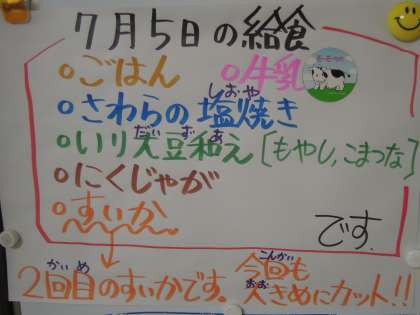 7月5日の給食
○ごはん ○牛乳
○さわらの塩焼き
しおや
○いり大豆和え[もやし,こまつな]
だいずあ
○にくじゃが
○すいか
です.
2回目のすいかです。今回も
かいめ こんかい
大きめにカット!!
おお